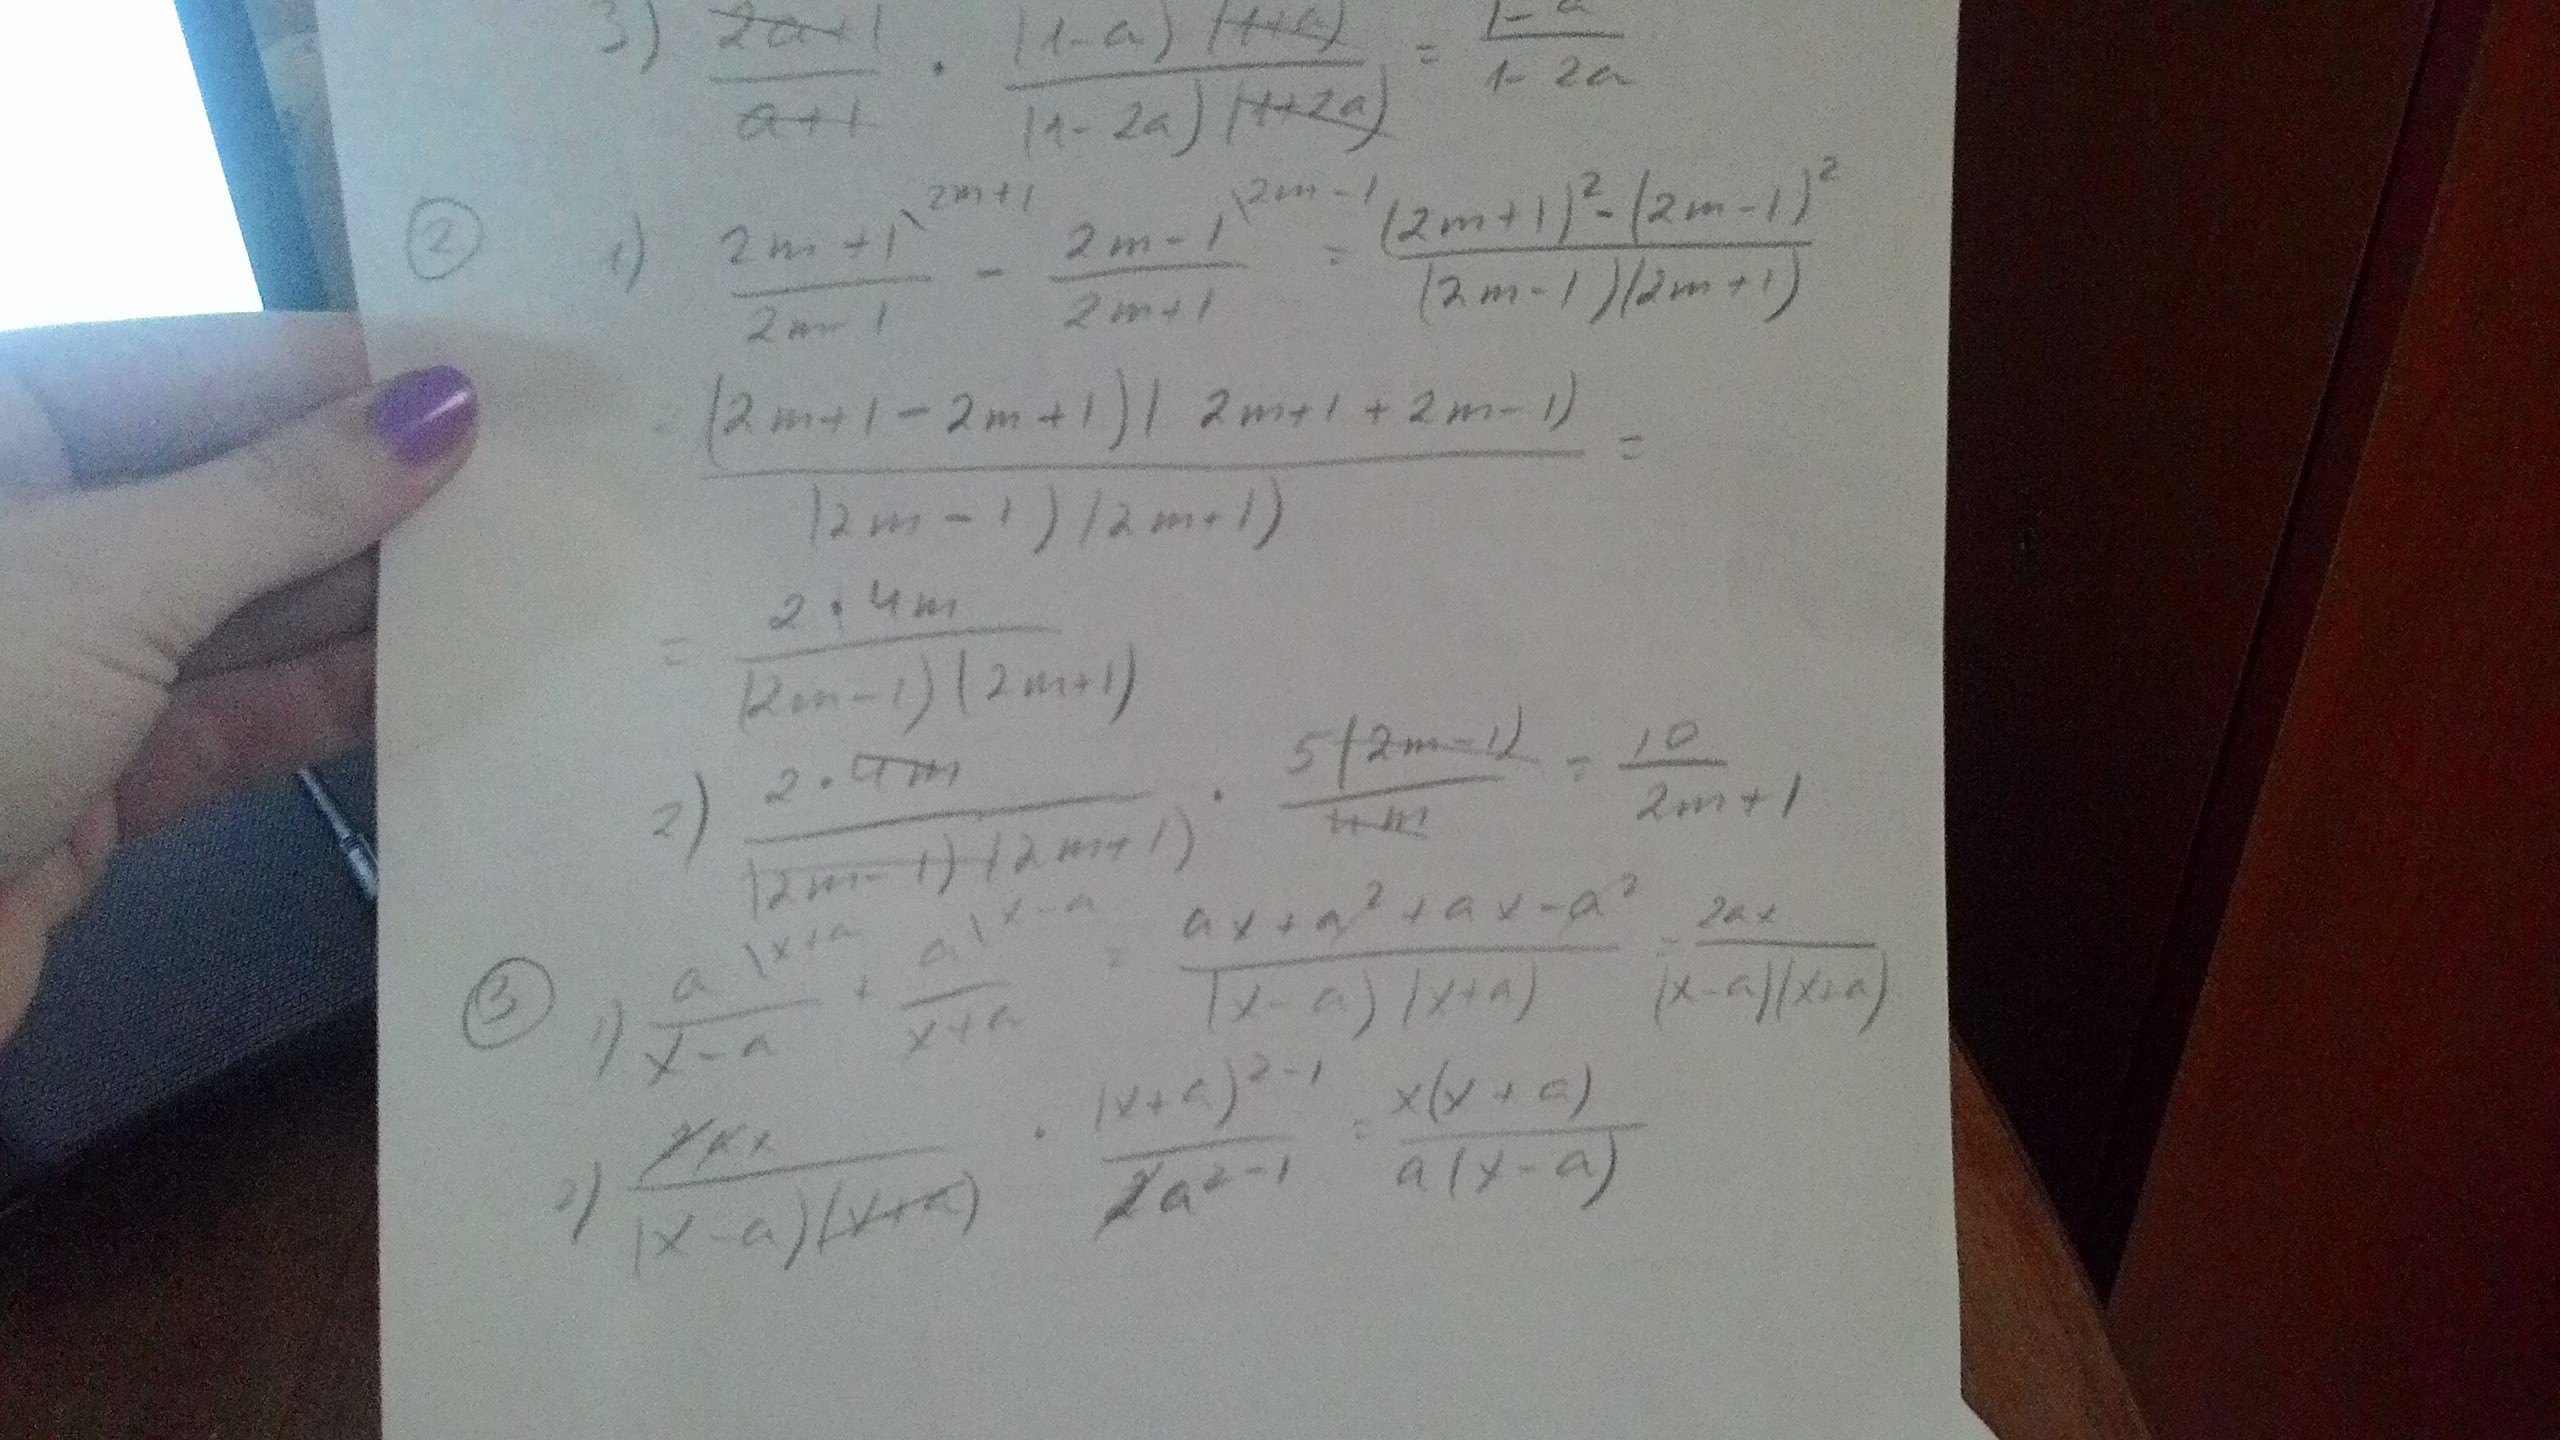 3) (2a+1)/(a+1) · ((1-a)(1+a))/((1-2a)(1+2a)) = (1-a)/(1-2a)
② 1) (2m+1)/(2m-1) \2m+1 - (2m-1)/(2m+1) \2m-1 = ((2m+1)²-(2m-1)²)/((2m-1)(2m+1))
= ((2m+1-2m+1)(2m+1+2m-1))/((2m-1)(2m+1)) =
= (2·4m)/((2m-1)(2m+1))
2) (2·4m)/((2m-1)(2m+1)) · (5(2m-1))/(4m) = 10/(2m+1)
③ 1) a/(x-a) \x+a + a/(x+a) \x-a = (ax+a²+ax-a²)/((x-a)(x+a)) = 2ax/((x-a)(x+a))
2) 2ax/((x-a)(x+a)) · (x+a)²⁻¹/(2a²⁻¹) = x(x+a)/(a(x-a))